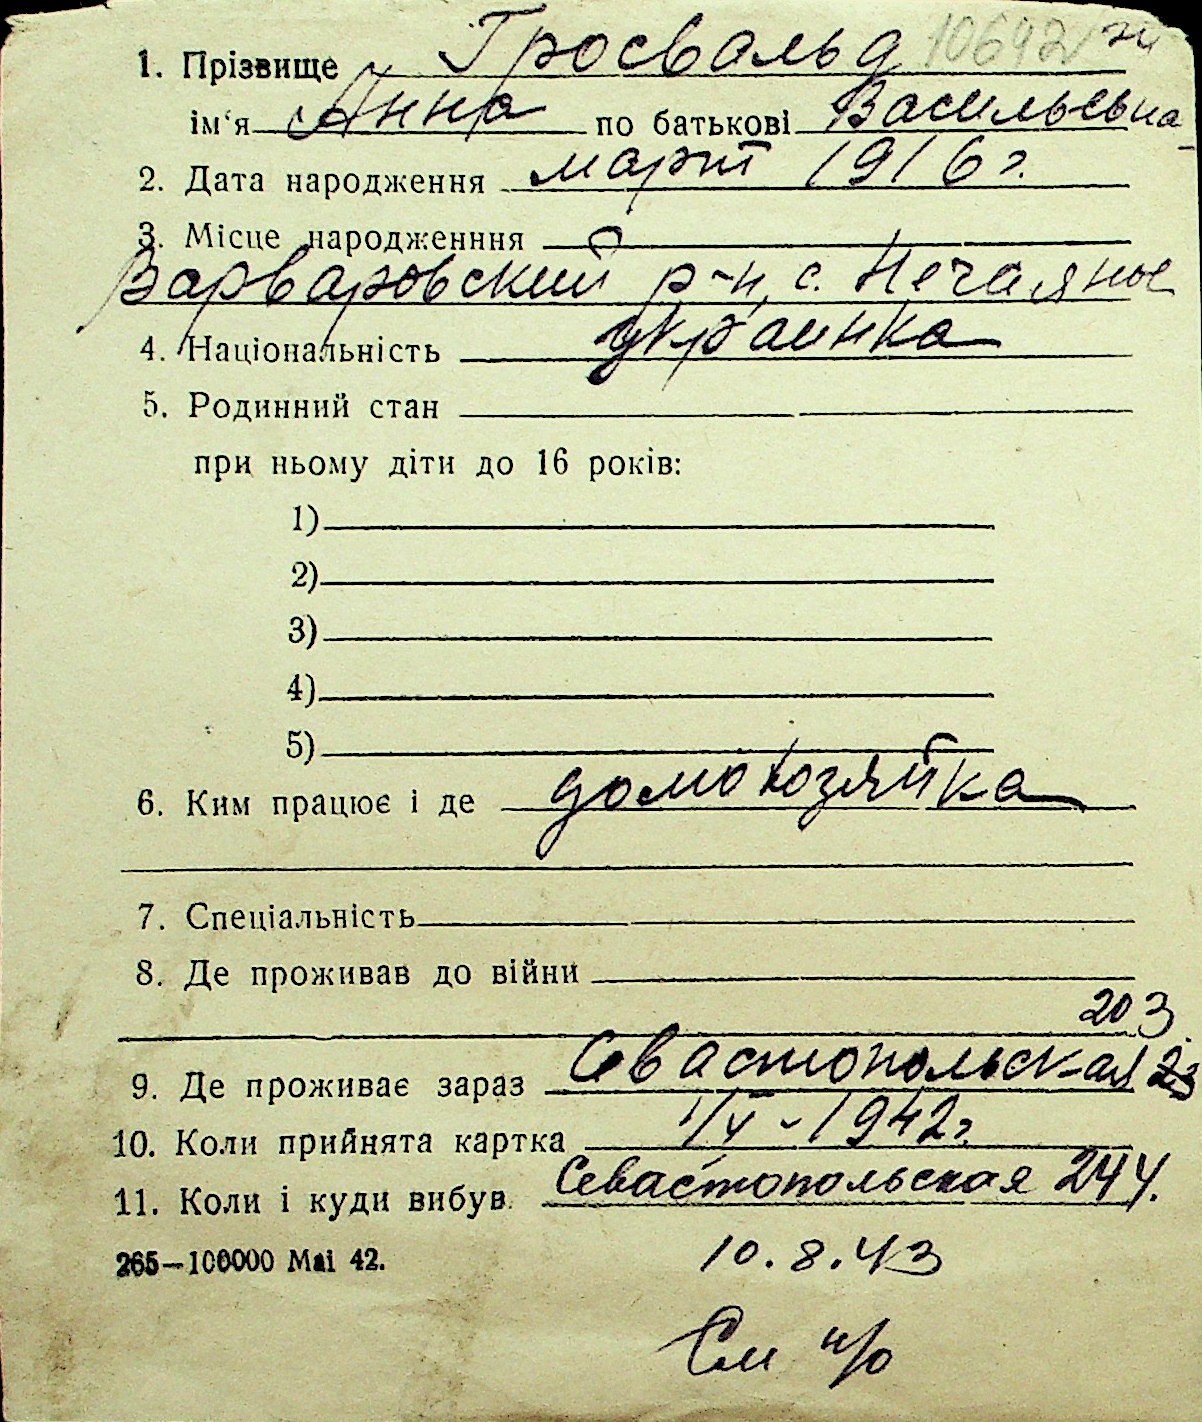 1. Прізвище Гросвальд 10692/
ім'я Анна по батькові Васильевна
2. Дата народження март 1916 г.
3. Місце народженння
Варваровский р-н, с. Нечаяное
4. Національність украинка
5. Родинний стан
при ньому діти до 16 років:
1)
2)
3)
4)
5)
6. Ким працює і де домохозяйка
7. Спеціальність
8. Де проживав до війни
203
9. Де проживає зараз Севастопольская 23
10. Коли прийнята картка 1/V - 1942 г.
11. Коли і куди вибув. Севастопольская 244.
265—100000 Mai 42.
10.8.43
См н/о